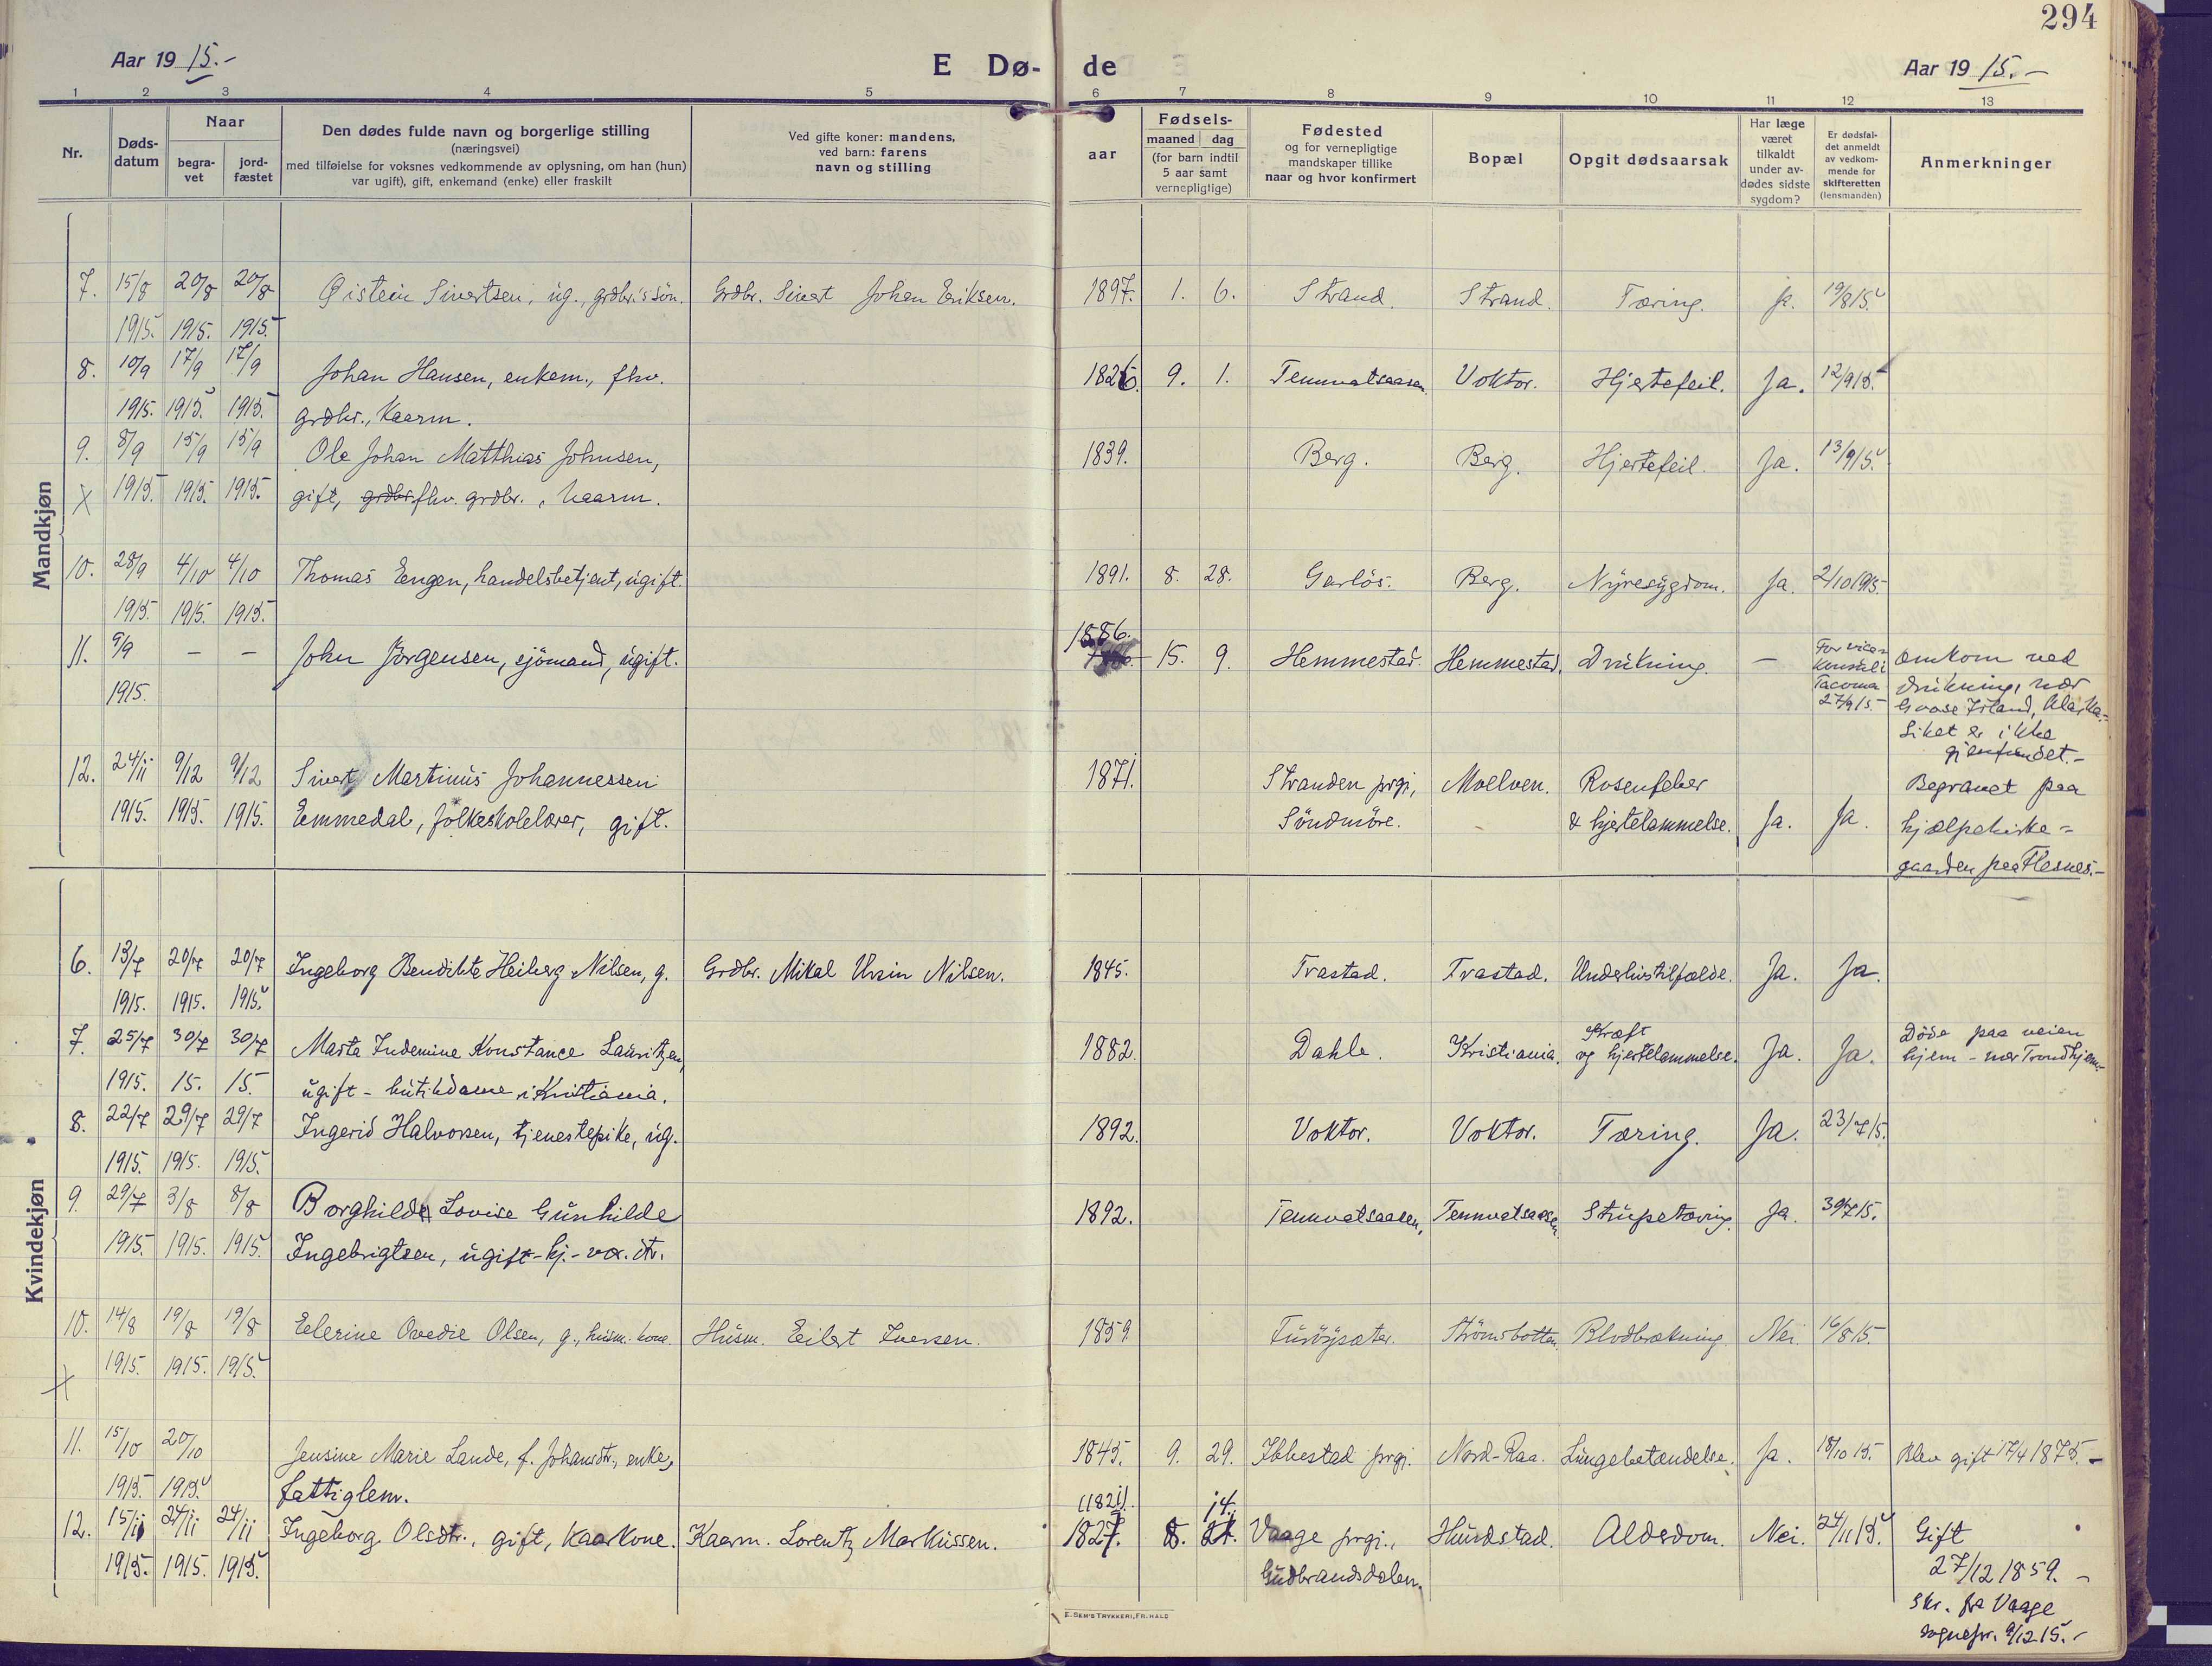 294
Aar 19 15.-
E Dø- de
Aar 19 15.-
1 2 3 4 5 6 7 8 9 10 11 12 13
Nr.
Døds-
datum
Naar
begra-
vet
jord-
fæstet
Den dødes fulde navn og borgerlige stilling
(næringsvei)
med tilføielse for voksnes vedkommende av oplysning, om han (hun)
var ugift), gift, enkemand (enke) eller fraskilt
Ved gifte koner: mandens,
ved barn: farens
navn og stilling
aar
Fødsels-
maaned dag
(for barn indtil
5 aar samt
vernepligtige)
Fødested
og for vernepligtige
mandskaper tillike
naar og hvor konfirmert
Bopæl
Opgit dødsaarsak
Har læge
været
tilkaldt
under av-
dødes sidste
sygdom?
Er dødsfal-
det anmeldt
av vedkom-
mende for
skifteretten
(lensmanden)
Anmerkninger
Mandkjøn
7. 15/8 20/8 20/8 Øistein Sivertsen, ug., grdbr's søn. Grdbr. Sivert Johan Eriksen. 1897. 1. 6. Strand. Strand. Tæring. Ja. 19/8 15.
1915. 1915. 1915.
8. 10/9 17/9 17/9 Johan Hansen, enkem., fhv. 1826. 9. 1. Tennvatsaasen. Voktor. Hjertefeil. Ja. 12/9 15.
1915. 1915. 1915. grdbr., kaarm.
9. 8/9 15/9 15/9 Ole Johan Matthias Johnsen, 1839. Berg. Berg. Hjertefeil. Ja. 13/9 15.
X 1915. 1915. 1915. gift, grdbr fhv. grdbr., kaarm.
10. 28/9 4/10 4/10 Thomas Eengen, handelsbetjent, ugift. 1891. 8. 28. Garløs. Berg. Nyresygdom. Ja. 2/10 1915.
1915. 1915. 1915.
11. 9/9 - - John Jörgensen, sjömand, ugift. 1886. 15. 9. Hemmestad. Hemmestad. Drukning. - For vice-
konsul i
Tacoma
27/9 15.-
1915.
Omkom ved
drukning, nær
Goose Island, Alaska.-
Liket er ikke
gjenfundet.-
12. 24/11 9/12 9/12 Sivert Martinus Johannessen 1871. Stranden prgj., Moelven. Rosenfeber Begravet paa
1915. 1915. 1915. Emmedal, folkeskolelærer, gift. Söndmöre. & hjertelammelse. Ja. Ja. hjælpekirke=
gaarden paa Flesnes.-
Kvindekjøn
6. 13/7 20/7 20/7 Ingeborg Bendikte Heiberg Nilsen, g. Grdbr. Mikal Ursin Nilsen. 1845. Trastad. Trastad. Underlivstilfælde. Ja. Ja.
1915. 1915. 1915.
7. 25/7 30/7 30/7 Marta Indemine Konstance Lauritzen, 1882. Dahle. Kristiania. Kræft
og hjertelammelse. Ja. Ja. Döde paa veien
hjem - nær Trondhjem.
1915. 15. 15. ugift - butikdame i Kristiania.
8. 22/7 29/7 29/7 Ingerid Halvorsen, tjenestepike, ug. 1892. Voktor. Voktor. Tæring. Ja. 23/7 15.
1915. 1915. 1915.
9. 29/7 3/8 8/8 Borghilde Lovise Gunhilde 1892. Tennvatsaasen, Tennvatsaasen. Strupetæring. Ja. 30/7 15.
1915. 1915. 1915. Ingebrigtsen, ugift - hj.- vær. dtr.
10. 14/8 19/8 19/8 Elerine Ovedie Olsen, g., husm. kone. Husm. Eilert Iversen. 1859 Furöysæter. Strömsbotten. Blodbrækning. Nei. 16/8 15.
1915. 1915. 1915.
X
11. 15/10 20/10 Jensine Marie Lande, f. Johansdtr., enke, 1845. 9. 29. Ibbestad prgj. Nord-Raa. Lungebetændelse. Ja. 18/10 15. Blev gift 17/4 1875.-
1915. 1915. fattiglem.
12. 15/11 24/11 24/11 Ingeborg Olsdtr., gift, kaarkone. Kaarm. Lorentz Markussen. (1821). 1827. 8. 14. 21. Vaage prgj., Hundstad. Aldersdom. Nei. 24/11 15. Gift
1915. 1915. 1915. Gudbrandsdalen. 27/12 1859.-
Skr. fra Vaage
sognepr. 9/12 15.-
E. SEM'S TRYKKERI, FR.HALD